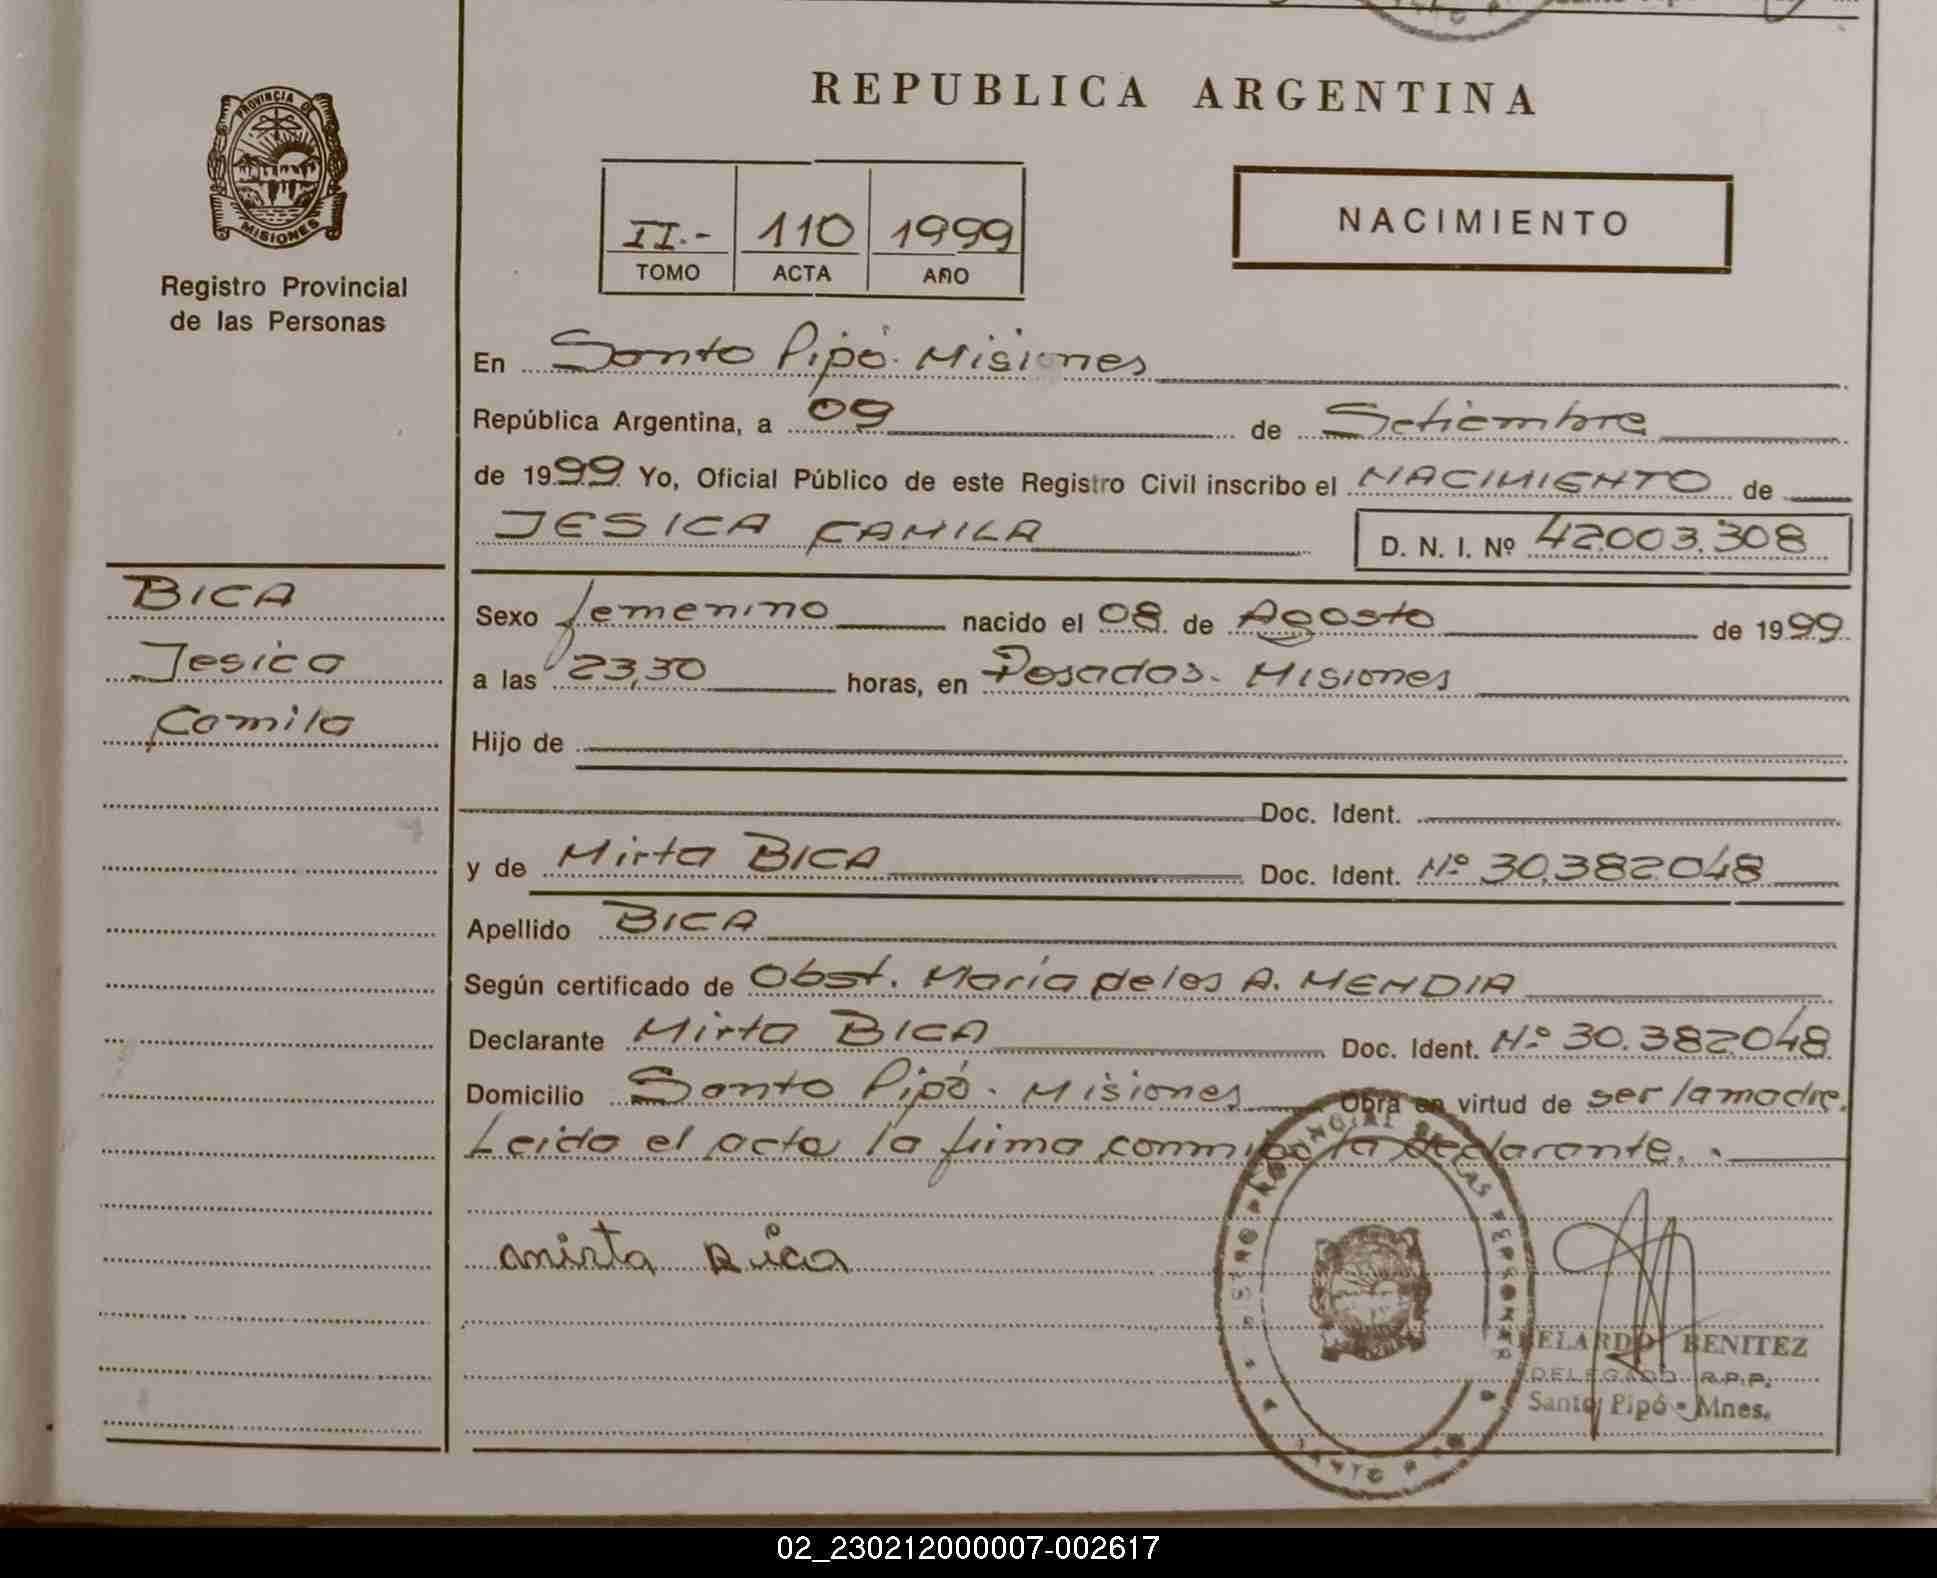 REPUBLICA ARGENTINA
PROVINCIA DE
MISIONES
Registro Provincial
de las Personas
II.- 110 1999
TOMO ACTA AÑO
NACIMIENTO
En Santo Pipó. Misiones
República Argentina, a 09 de Setiembre
de 1999 Yo, Oficial Público de este Registro Civil inscribo el NACIMIENTO de
JESICA CAMILA D. N. I. Nº 42.003.308
BICA
Jesica
Camila
Sexo femenino nacido el 08 de Agosto de 1999
a las 23,30 horas, en Posadas. Misiones
Hijo de
Doc. Ident.
y de Mirta BICA Doc. Ident. Nº 30.382.048
Apellido BICA
Según certificado de Obst. María de los A. MENDIA
Declarante Mirta BICA Doc. Ident. Nº 30.382.048
Domicilio Santo Pipó. Misiones Obra en virtud de ser la madre.
Leida el acta la firma conmigo la declarante. .
mirta Bica
REGISTRO PROVINCIAL DE LAS PERSONAS
SANTO PIPO
BELARDO BENITEZ
DELEGADO R.P.P.
Santo Pipó - Mnes.
02_230212000007-002617